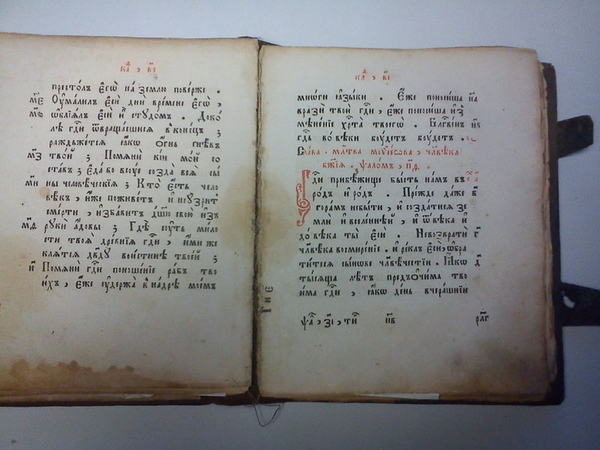 каѳ , в҃і
престолъ єгѡ на землю поверже .
м҃є Оумалилъ єси дни времене єгѡ ,
ѡблїѧлъ єси и стꙋдомъ . Доко
лѣ гдⷭ҇и ѿвращаешисѧ в конецъ ;
раждежетсѧ ꙗко огнь гнѣвъ
м҃з твои ; Помѧни кїи мои со
ставъ ; єда бо всꙋе созда всѧ сы
м҃и ны человѣческїѧ ; Кто єсть чело
вѣкъ , иже поживетъ и неꙋзрит
смерти , избавитъ дш҃ꙋ свою изъ
м҃ѳ рꙋки адовы ; Где сꙋть мило
сти твоѧ древнїѧ гдⷭ҇и , ими же
клѧтсѧ дв҃дꙋ воистинѣ твоей ;
н҃ Помѧни гдⷭ҇и поношенїе рабъ тво
ихъ , єже ꙋдержа в надрѣ моемъ
каѳ , в҃і
многи ꙗзыки . Єже поносиша
врази твои гдⷭ҇и , єже поносиша из
мѣненїю хрⷭ҇та твоегѡ . Блгⷭ҇венъ
гдⷭ҇ь во вѣки бꙋдетъ бꙋдетъ .
Слава . Млтва моѵсеѡва , члв҃ѣка
бж҃їѧ . ѱаломъ , п҃ѳ .
Гдⷭ҇и прибѣжище бысть намъ в
родъ и родъ . Прежде даже
горамъ небыти , и создатисѧ зе
мли и вселеннѣй , и ѿ вѣка и
до вѣка ты єси . Невозврати
члв҃ѣка восмиренїе . и реклъ єси , ѡбра
титесѧ сынове члв҃ѣчестїи . Ꙗко
тысѧща лѣтъ пред ѡчима тво
има гдⷭ҇и , ꙗко день вчерашнїи